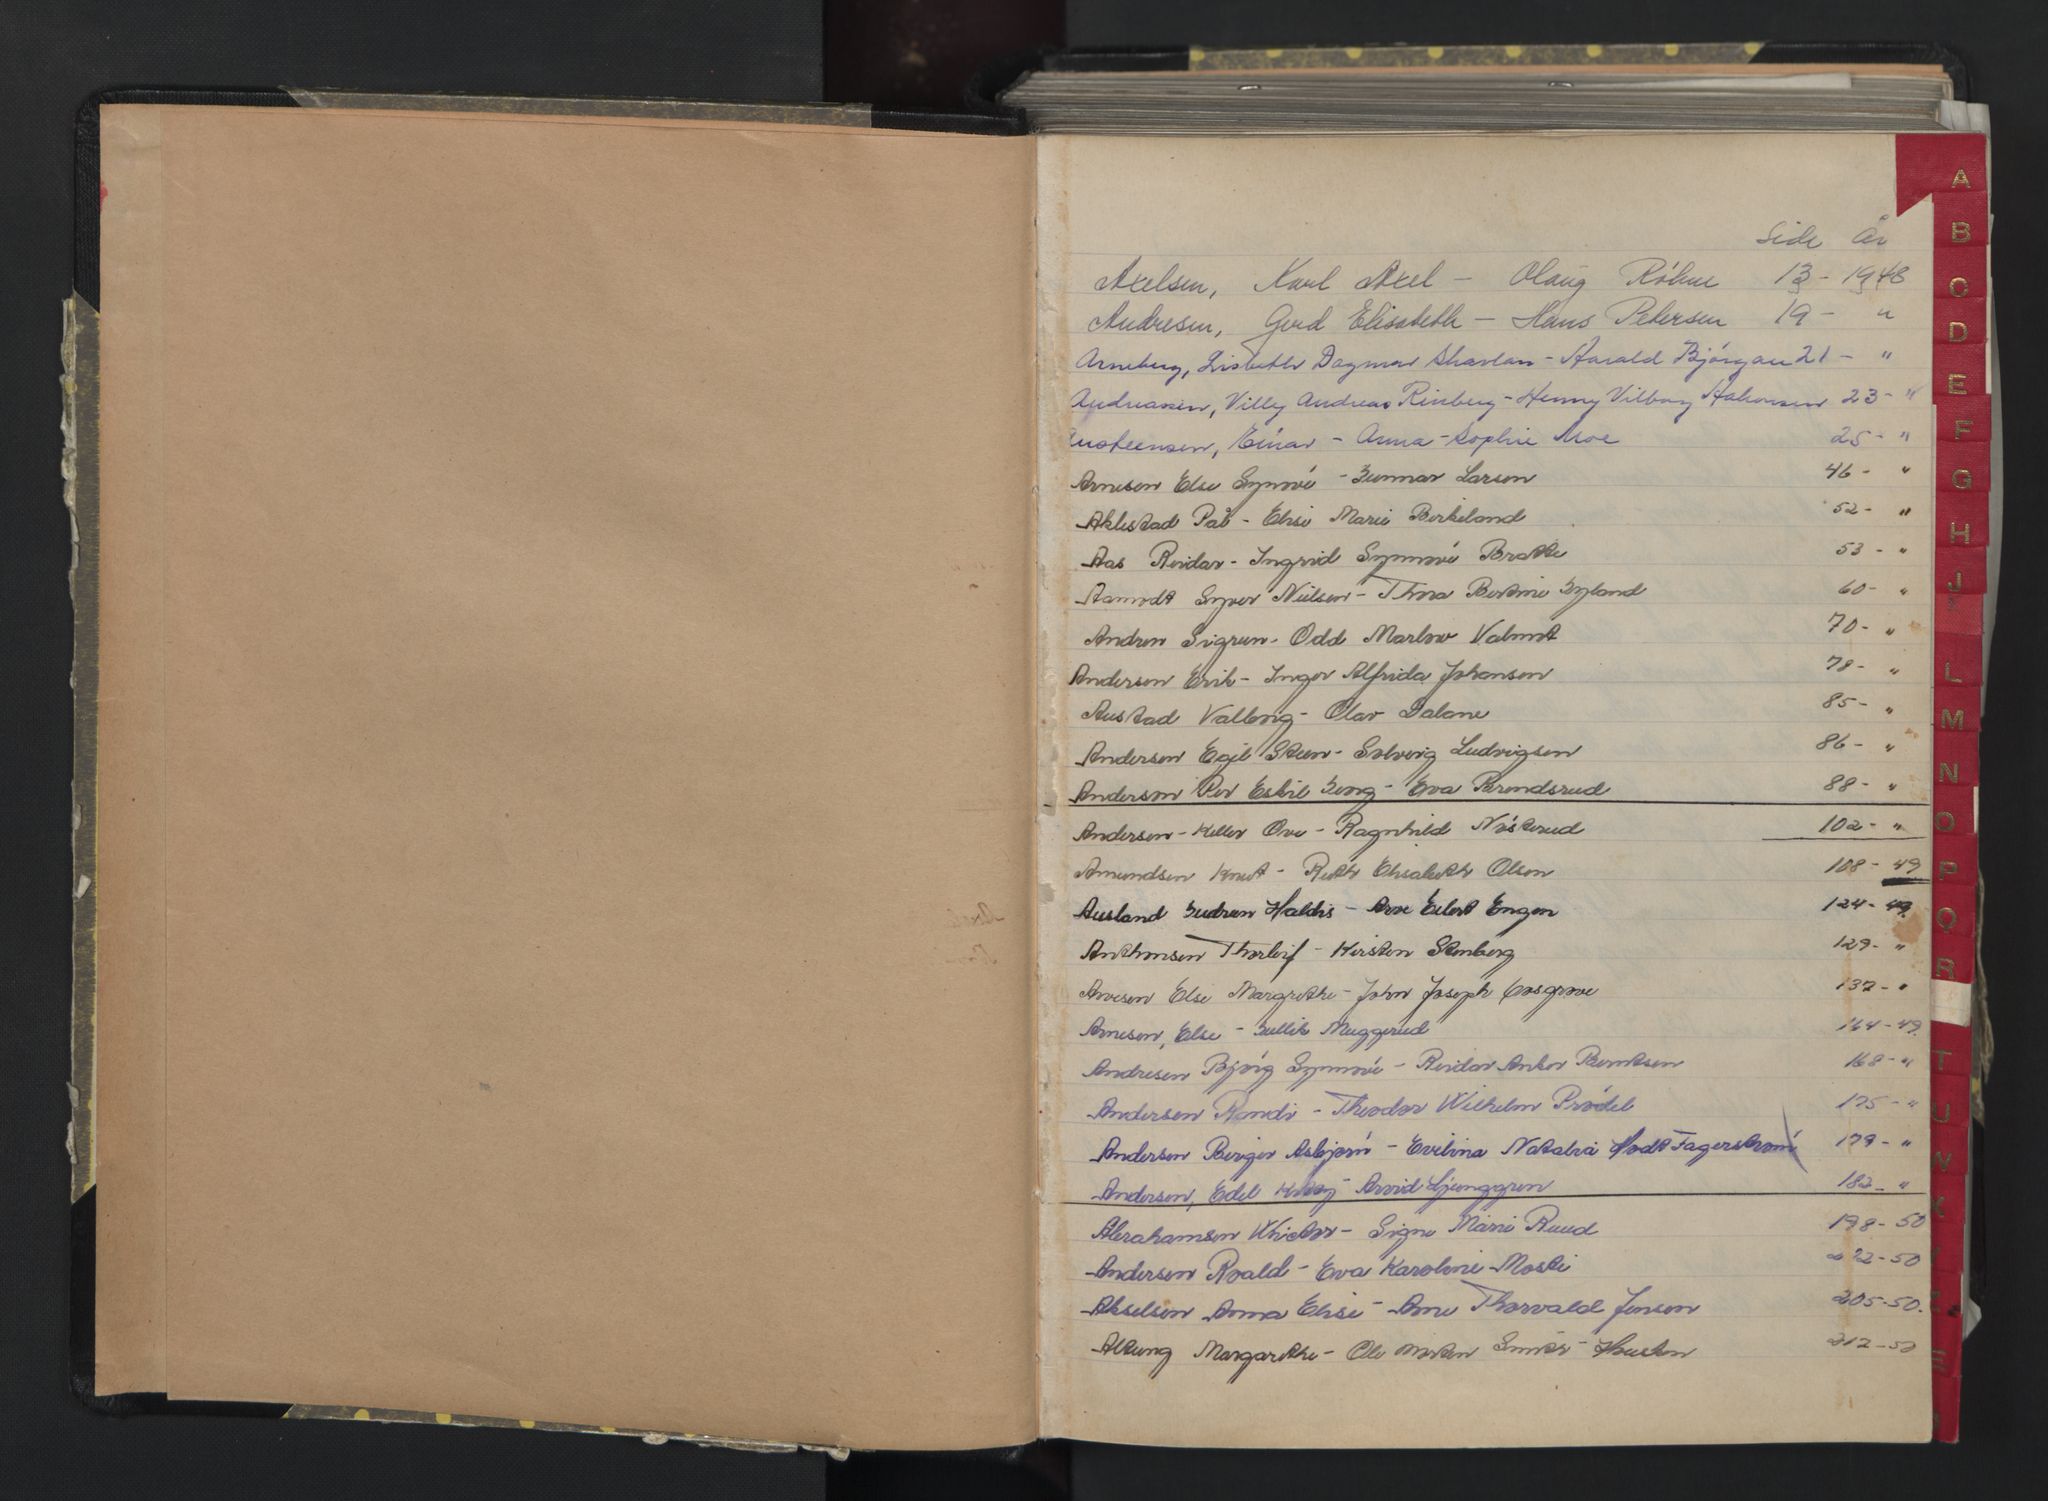 Side År
Axelsen, Karl Axel - Olaug Røhne 13 - 1948
Andresen, Gerd Elisabeth - Hans Petersen 19 - "
Arneberg, Lisbeth Dagmar - Harald Bjørgan 21 - "
Andreassen, Villy Andreas Rinberg - Henny Vilborg 23 - "
Austeensen, Einar - Anna-Sophie Moe 25 - "
Arnesen Else Synnøve - Gunnar Larsen 46 - "
Aklestad Pål - Elise Marie Birkeland 52 - "
Aas Reidar - Ingrid Synnøve Bratlie 53 - "
Aamodt Syver Nielsen - Thora Bertine Gyland 60 - "
Andren Sigrun - Odd Marlow 70 - "
Andersen Erik - Inger Alfrida Johansen 78 - "
Austad Valborg - Olav Dalane 85 - "
Andersen Egil Steen - Solveig Ludvigsen 86 - "
Anderson Per Eskil Georg - Eva Brendsrud 88 - "
Andersen - Keller Ove - Ragnhild Nøsterud 102 - "
Amundsen Knut - Ruth Elisabeth Olsen 108 - 49
Ausland Gudrun Haldis - Arve Eilert Engen 124 - 49
Anthonsen Thorleif - Kirsten Stenberg 129 - "
Arvesen Else Margrethe - John Joseph Cosgrove 137 - "
Arnesen, Else - Gullik Muggerud 164 - 49
Andresen Bjørg Synnøve - Reidar Anker Berntsen 168 - "
Andersen Randi - Theodor Wilhelm Prødel 175 - "
Andersen Birger Asbjørn - Evelina Natalia Hodt Fagerstrøm 179 - "
Andersen, Edel - Arvid Ljunggren 182 - "
Abrahamsen Victor - Signe Marie Ruud 198 - 50
Andersen Roald - Eva Karoline Moski 222 - 50
Akselsen Anna Elise - Arne Thorvald Jensen 205 - 50
Altung Margarethe - Ole Morten Hauston 212 - 50
A
B
C
D
E
F
G
H
J
L
M
N
O
P
Q
R
T
U